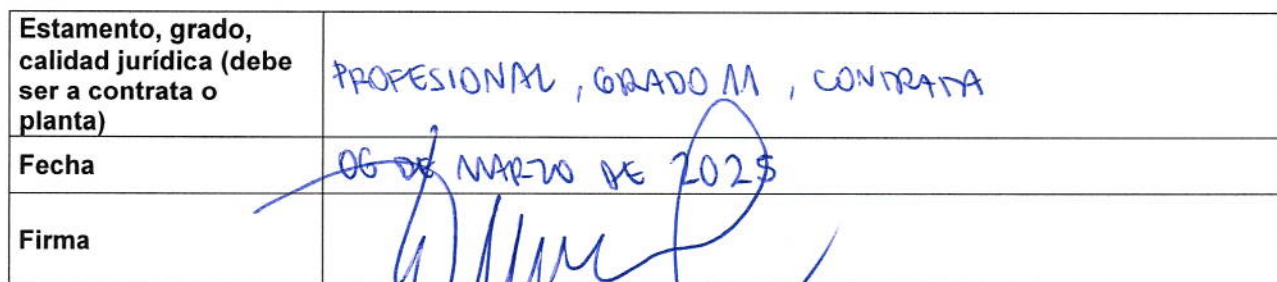 Estamento, grado,
calidad jurídica (debe
ser a contrata o
planta)
PROFESIONAL, GRADO 11, CONTRATA
Fecha
06 DE MARZO DE 2025
Firma